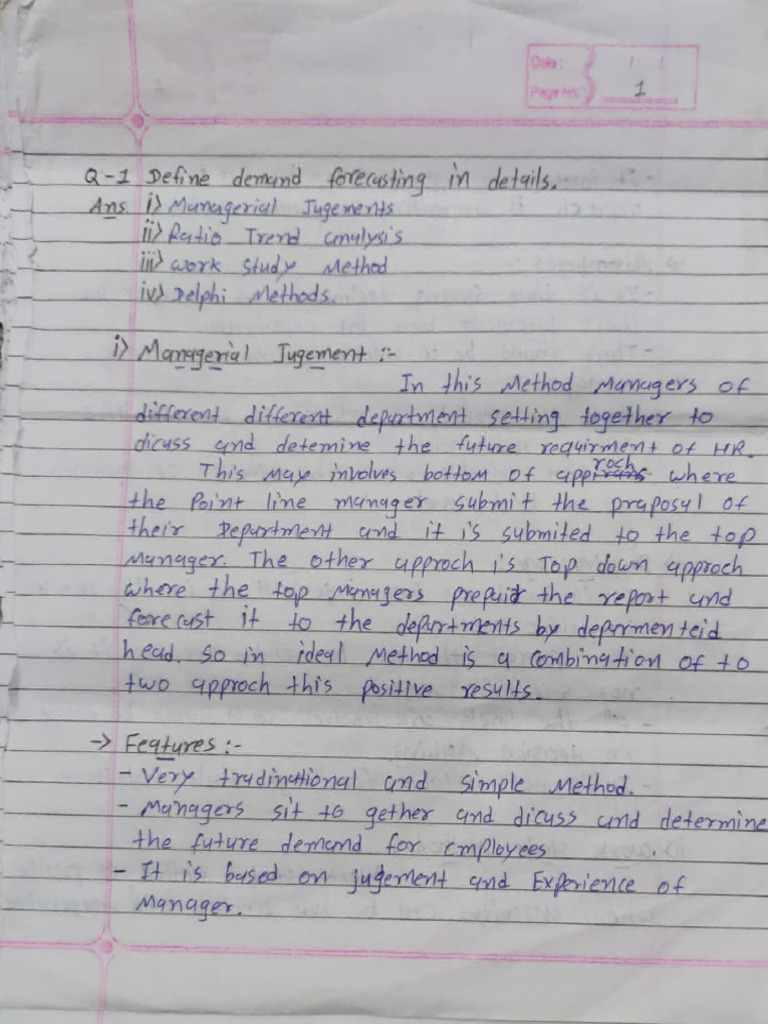 Date: / /
Page No. 1
Q-1 Define demand forecasting in details.
Ans. i) Managerial Jugements
ii) Ratio Trend analysis
iii) work study Method
iv) Delphi Methods.
i) Managerial Jugement :-
In this Method Managers of
different different department setting together to
dicuss and detemine the future requirment of HR.
This may involves bottom of approch where
the Point line manager submit the praposal of
their Department and it is submited to the top
Manager. The other approch is Top down approch
where the top Managers prepair the report and
forecast it to the departments by deparmenteid
head. so in ideal Method is a combination of to
two approch this positive results.
→ Features :-
- Very tradinational and simple Method.
- Managers sit to gether and dicuss and determine
the future demand for employees.
- It is based on jugement and Experience of
Manager.